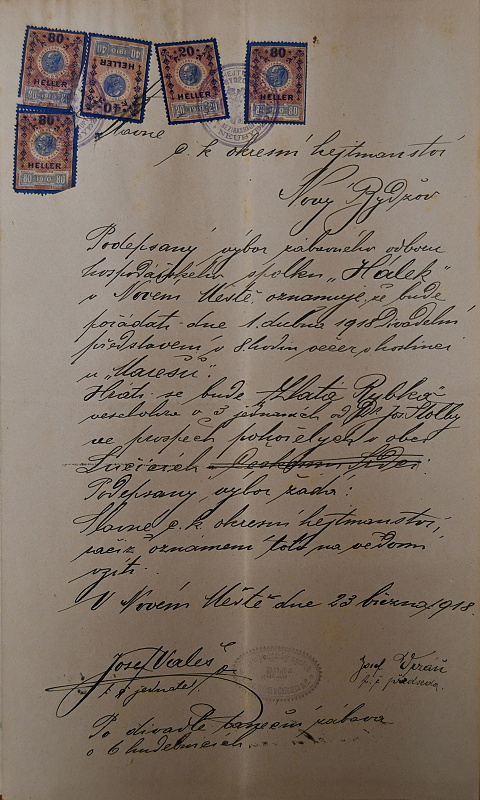 80
HELLER
20 1910 20
40 1910 40
HELLER
40
20
HELLER
20 1910 20
80
HELLER
80 1910 80
80
HELLER
80 1910 80
Slavné
c. k. okresní hejtmanství
Nový Bydžov
Podepsaný výbor zábavného odboru
hospodářského spolku „Hálek"
v Novém Městě, oznamuje, že bude
pořádati dne 1. dubna 1918 Divadelní
představení v 8 hodin večer v hostinci
u „Marešů".
Hráti se bude Zlatá Rybka
veselohra o 3 jednáních od Dr. Jos. Štolby
ve prospěch pohořelých v obci
Lučicích
Podepsaný výbor žádá:
Slavné c. k. okresní hejtmanství,
račiž oznámení toto na vědomí
vzíti.
V Novém Městě dne 23 března 1918.
Josef Valeš
t. č. jednatel.
Josef
t. č. předseda.
Po divadle taneční zábava
o 6 hudebnících.